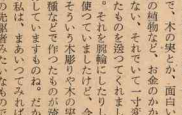 で、木の実とか、面白い
の植物など、お金のか
ない、それでいて一寸変
たものを送つてくれま
。それを腕輪にしたり
使つていましたけど、今
そういう木彫りや木の実
種などで作つたものが流
していますものね。だか
私は、まあいつてみれば
の先駆者みたいなもので